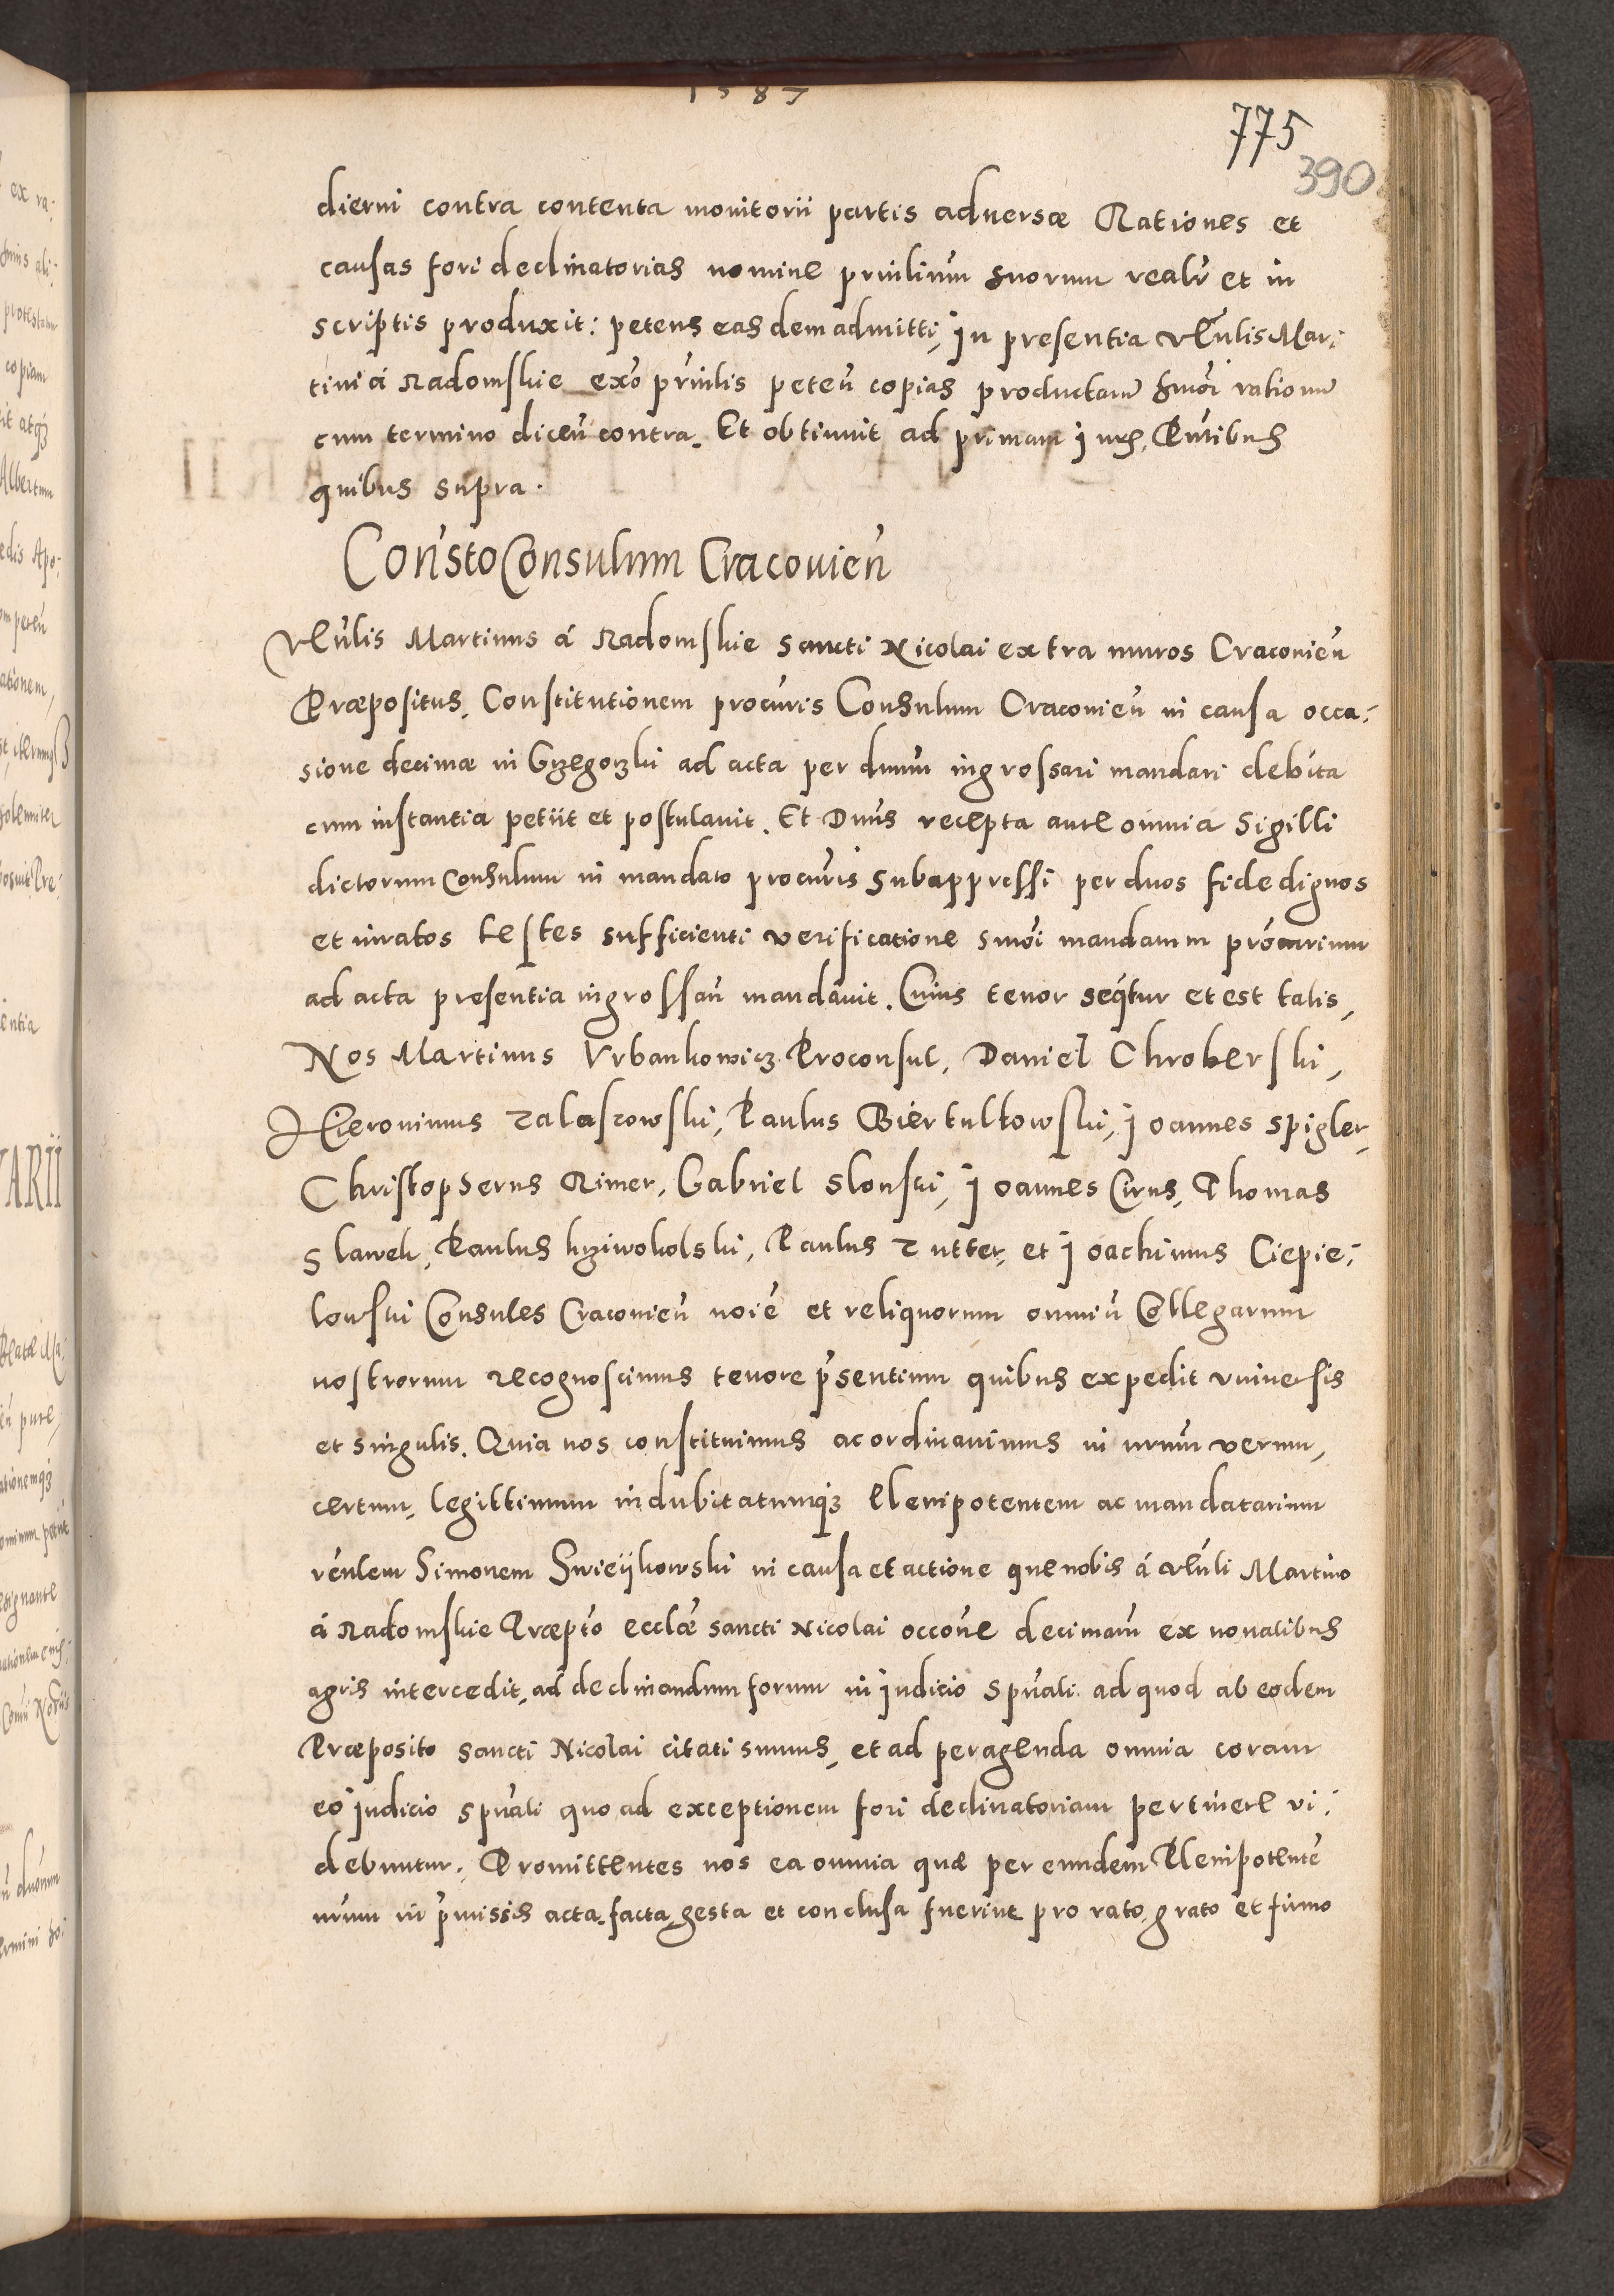 1587
775
390
dierni contra contenta monitorii partis aduersæ Rationes et
causas fori declinatorias nomine prinlium suorum realr et in
scriptis produxit: petens easdem admitti, In presentia Vēnlis Mar-
tini á Radomskie exo prinlis peteñ copias productarum hmoi rationum
cum termino diceñ contra. Et obtinuit ad primam iuris, Pñtibus
quibus supra.
Consto Consulum Cracouieñ
Vēnlis Martinus á Radomskie Sancti Nicolai extra muros Cracouieñ
Præpositus, Constitutionem procuris Consulum Cracouieñ in causa occa-
sione decimæ in Grzegorzki ad acta per dnum ingrossari mandari debita
cum instantia petiit et postulauit. Et Dnus recepta ante omnia Sigilli
dictorum Consulum in mandato procuris subappressi per duos fide dignos
et iuratos testes sufficienti verificatione hmoi mandatum procurium
ad acta presentia ingrossari mandauit. Cuius tenor seqtur et est talis,
Nos Martinus Vrbankowicz Proconsul, Daniel Chroberski,
Hieronimus Zalaszowski, Paulus Biertultowski, Joannes Spigler,
Christopherus Rimer, Gabriel Slonski, Joannes Cirus, Thomas
Slawek, Paulus krziwokolski, Paulus Zutter, et Joachimus Ciepie-
lowski Consules Cracouieñ noie et reliquorum omniu Collegarum
nostrorum recognoscimus tenore pñsentium quibus expedit vniuersis
et singulis. Quia nos constituimus ac ordinauimus in nrum verum,
certum, legittimum indubitatumqz Plenipotentem ac mandatarium
vēnlem Simonem Swieijkowski in causa et actione que nobis á Vēnli Martino
á Radomskie Præpto ecclæ sancti Nicolai occone decimarum ex noualibus
agris intercedit, ad declinandum forum in Judicio spñali ad quod ab eodem
Præposito sancti Nicolai citati sumus, et ad peragenda omnia coram
eo judicio spñali quo ad exceptionem fori declinatoriam pertinere vi-
debuntur. Promittentes nos ea omnia quæ per eundem Plenipotente
nrum in pmissis acta, facta, gesta et conclusa fuerint pro rato, grato et firmo